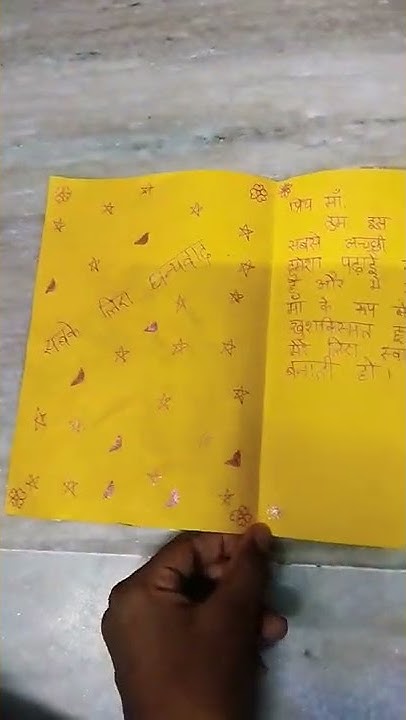 सबके लिए धन्यवाद
प्रिय माँ,
तुम इस
सबसे अच्छी
हमेशा पढ़ाई
और मैं
माँ के रूप में
खुशकिस्मत हूँ
मेरे लिए स्वा
बनाती हो।